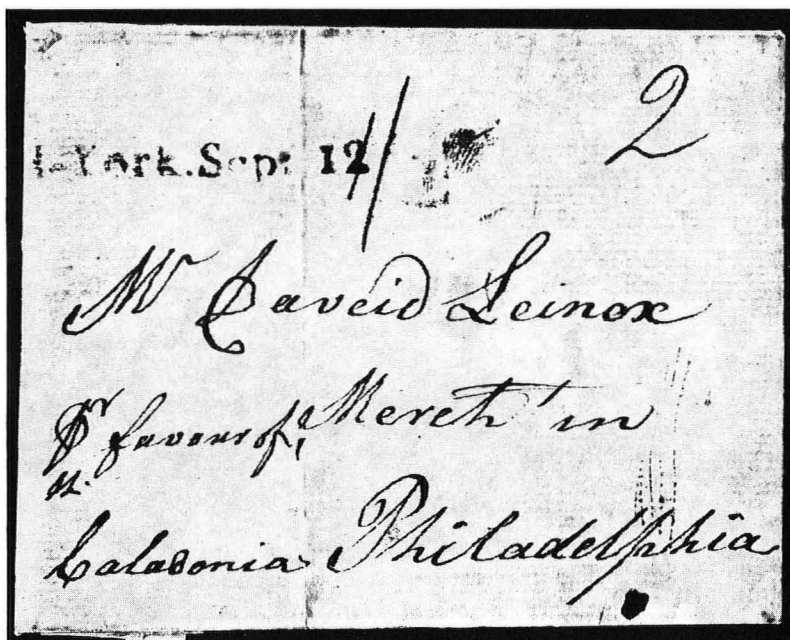 2
York.Sept 12
Mr Daveid Leinox
Pr favour of, Merch' in
Caladonia Philadelphia